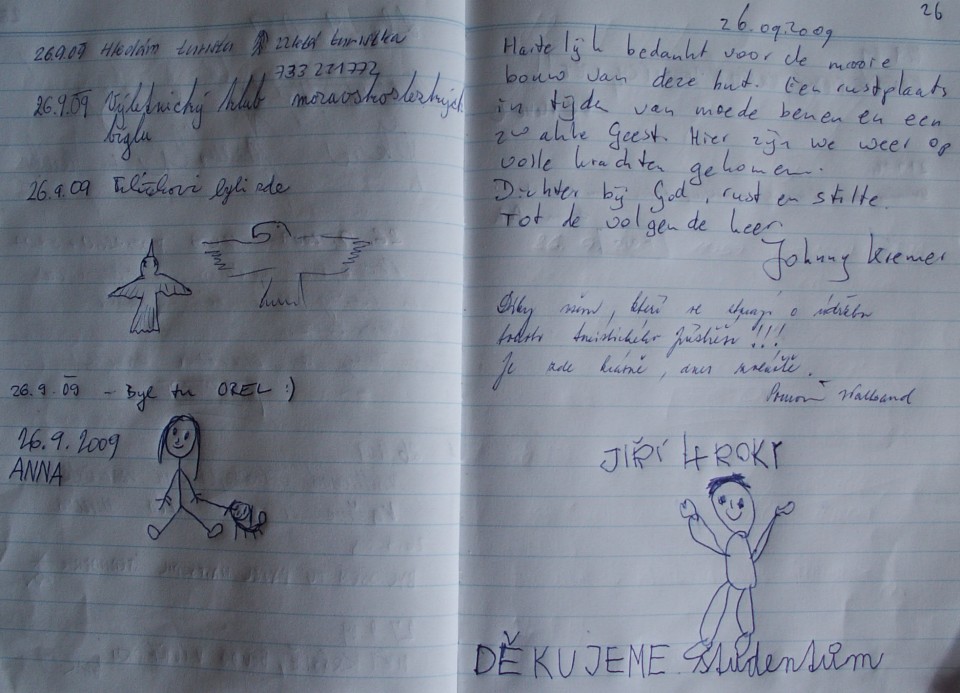 26.9.09 Hledám turistu
733 221772
26.9.09 Výletnický klub moravskoslezských
býglu
26.9.09 byli zde
26.9.09 - Byl tu OREL :)
26.9.2009
ANNA
26
26.09.2009
Hartelijk bedankt voor de mooie
bouw van deze hut. Een rustplaats
in tijden van moede benen en een
zwakke Geest. Hier zijn we weer op
volle krachten gekomen.
Dichter bij God, rust en stilte.
Tot de volgende keer.
Johnny Kremer
Díky všem, kteří se starají o údržbu
tohoto turistického přístřeší!!!
Je zde krásně, dnes
JIŘÍ 4 ROKY
DĚKUJEME studentům